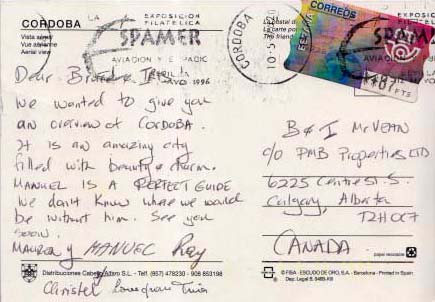 CORDOBA
Vista aérea
Vue aérienne
Aerial view
LA
EXPOSICION
FILATELICA
SPAMER
AVIACION Y ESPACIO
SEVILLA
MAYO 1996
CORDOBA
10-5
La postal d
La carte po
The friend
ESPAÑA
CORREOS
PTS
EXPOSICION
FILATELICA
SPAMER
AVIACION Y
Dear
We wanted to give you
an overview of CORDOBA.
It is an amazing city
filled with beauty & charm.
MANUEL IS A PERFECT GUIDE
We don't know where we would
be without him. See you
soon.
MANUEL
Christel Love from
B & I McVEAN
c/o PMB Properties LTD
6225 Centre St. S.
Calgary, Alberta
T2H 0C7
CANADA
papel reciclado
Distribuciones Cabello Alfaro S.L. - Telf. (957) 478230 - 908 653198
© FISA - ESCUDO DE ORO, S.A. - Barcelona - Printed in Spain
Dep. Legal B.